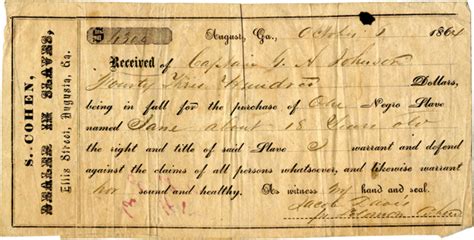 S. COHEN,
DEALER IN SLAVES,
Ellis Street, Augusta, Ga.
$ 1300
Augusta, Ga., October 1 1864
Received of Captain G. A. Johnson
Dollars,
being in full for the purchase of One Negro Slave
named Jane about 18 Years old
the right and title of said Slave I warrant and defend
against the claims of all persons whatsoever, and likewise warrant
her sound and healthy. As witness my hand and seal.
Jacob Davis
Cohen